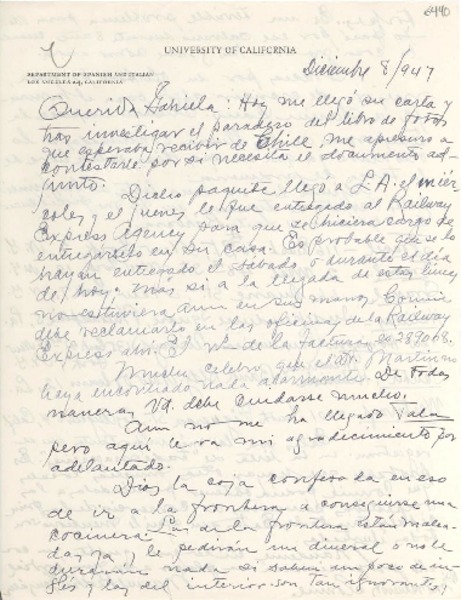 6440
UNIVERSITY OF CALIFORNIA
DEPARTMENT OF SPANISH AND ITALIAN
LOS ANGELES 24, CALIFORNIA
Diciembre 8/947
Querida Gabriela: Hoy me llegó su carta y
tras investigar el paradero del libro de fotos
que esperaba recibir de Chile me apresuro a
contestarle por si necesita el documento ad-
junto.
Dicho paquete llegó a L.A. el miér-
coles y el jueves le fue entregado al Railway
Express Agency para que se hiciera cargo de
entregárselo en su casa. Es probable que se lo
hayan entregado el sábado o durante el día
de hoy; mas si a la llegada de estas líneas
no estuviera aun en sus manos Connie
debe reclamarlo en las oficinas de la Railway
Express. El nº de la factura es 289018.
Mucho celebro que el Dr. Martin no
haya encontrado nada alarmante. De todas
maneras Vd. debe cuidarse mucho.
Aun no me ha llegado Tala
pero aquí le va mi agradecimiento por
adelantado.
Dios la coja confesada en eso
de ir a la frontera a conseguirse una
cocinera. Las de la frontera están malea-
das ya y le pedirán un dineral o no le
durarán nada si saben un poco de in-
glés y las del interior son tan ignorantes